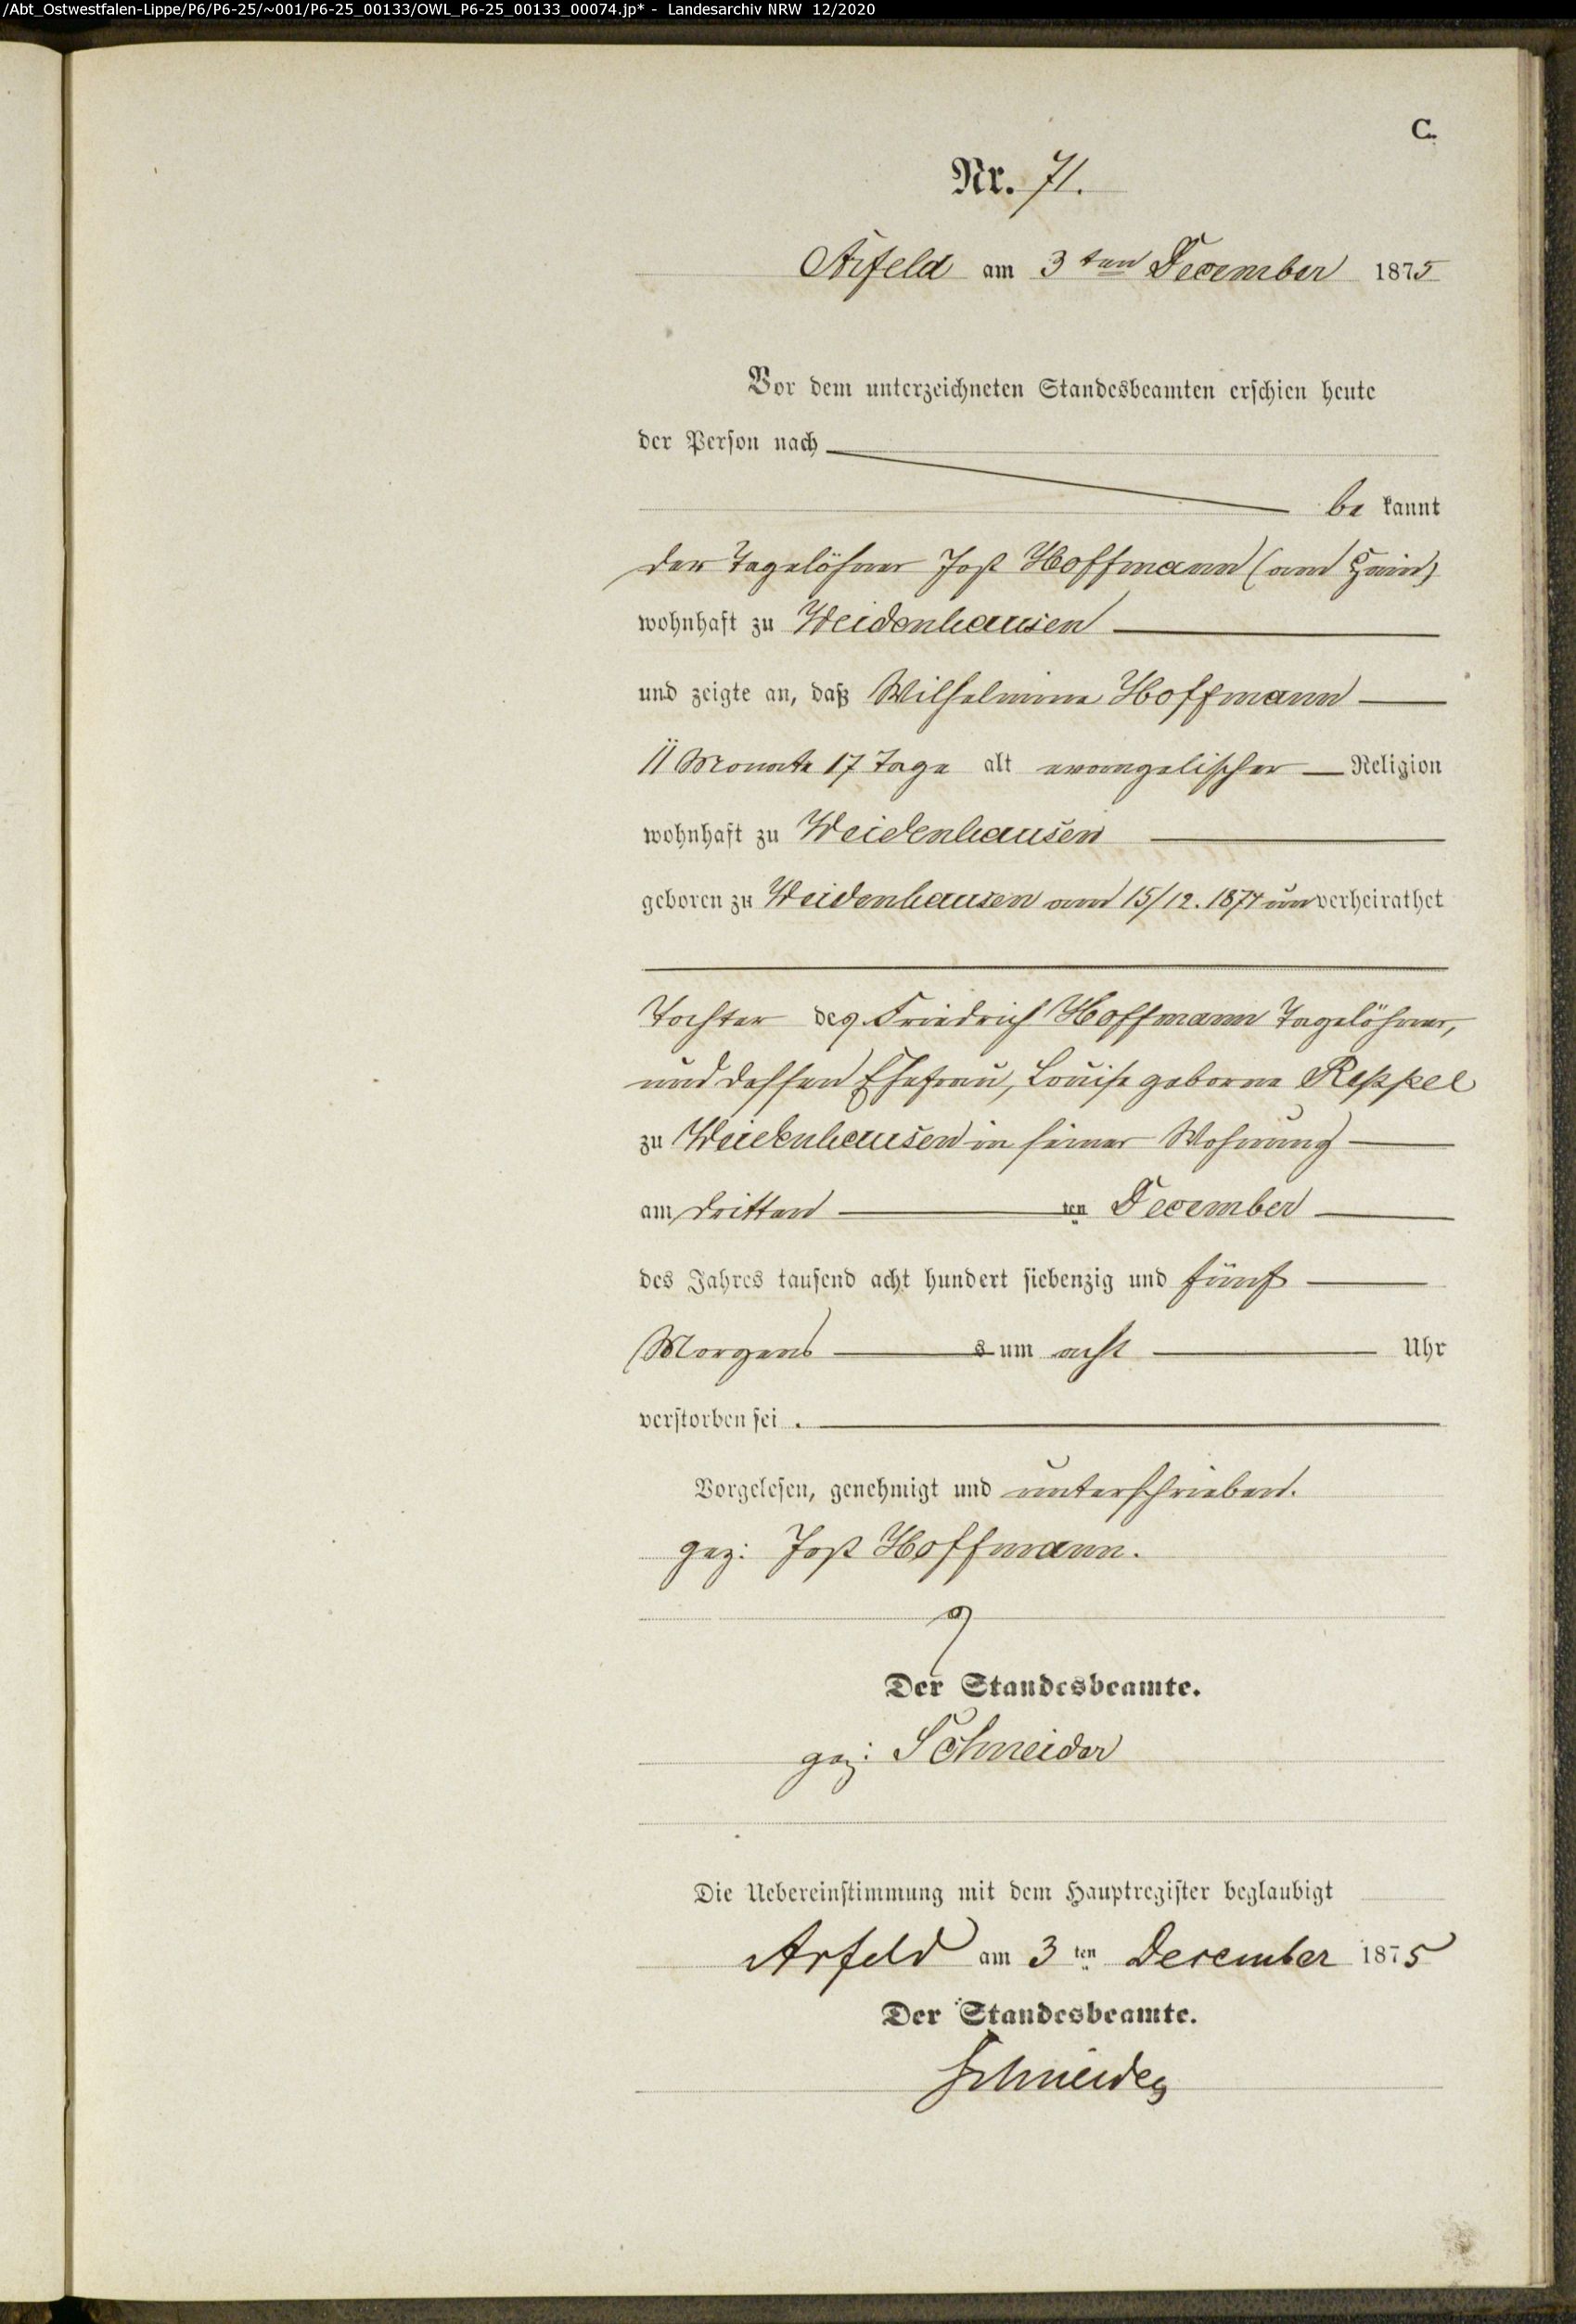 /Abt_Ostwestfalen-Lippe/P6/P6-25/~001/P6-25_00133/OWL_P6-25_00133_00074.jp* - Landesarchiv NRW 12/2020
C.
Nr. 71.
Arfeld am 3ten December 1875
Vor dem unterzeichneten Standesbeamten erschien heute
der Person nach
be kannt
der Tagelöhner Jost Hoffmann (am Hain)
wohnhaft zu Weidenhausen
und zeigte an, daß Wilhelmine Hoffmann
11 Monate 17 Tage alt evangelischer Religion
wohnhaft zu Weidenhausen
geboren zu Weidenhausen am 15/12. 1874 unverheirathet
Tochter des Friedrich Hoffmann Tagelöhner,
und dessen Ehefrau, Louise geborne Reppel
zu Weidenhausen in seiner Wohnung
am dritten ten December
des Jahres tausend acht hundert siebenzig und fünf
Morgens s um acht Uhr
verstorben sei.
Vorgelesen, genehmigt und unterschrieben.
gez: Jost Hoffmann.
Der Standesbeamte.
gez: Schneider
Die Uebereinstimmung mit dem Hauptregister beglaubigt
Arfeld am 3ten December 1875
Der Standesbeamte.
Schneider